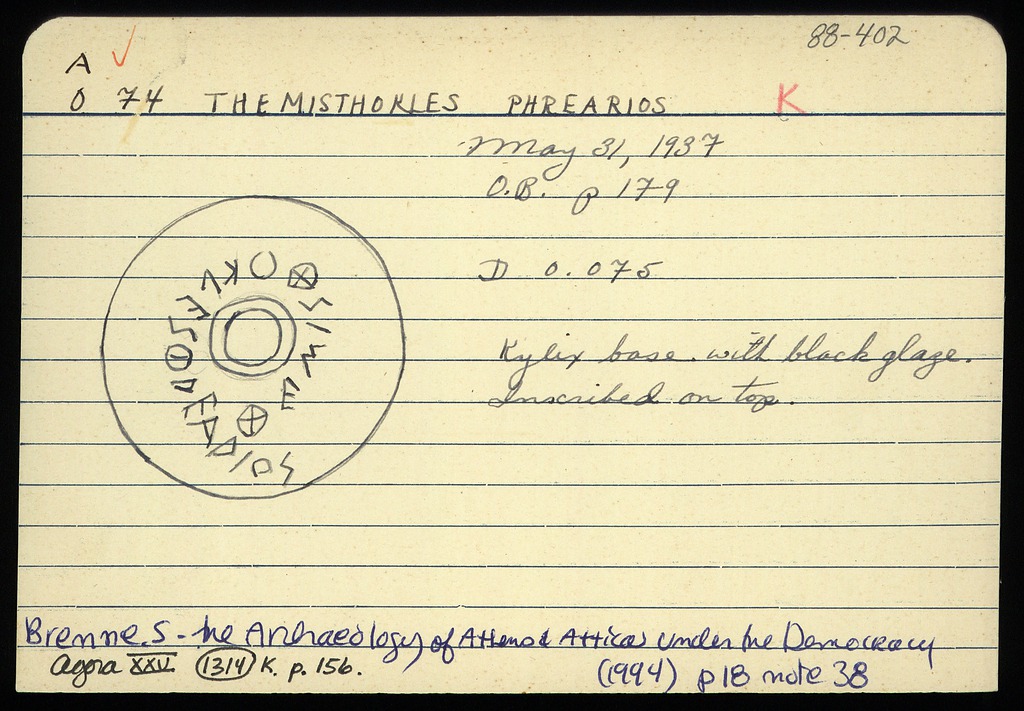 88-402
A ✓
O 74 THEMISTHOKLES PHREARIOS K
May 31, 1937
O.B. p 179
D 0.075
Kylix base with black glaze.
Inscribed on top.
Brenne. S - The Archaeology of Athens & Attica under the Democracy
Agora XXV (1314) K. p. 156. (1994) p 18 note 38